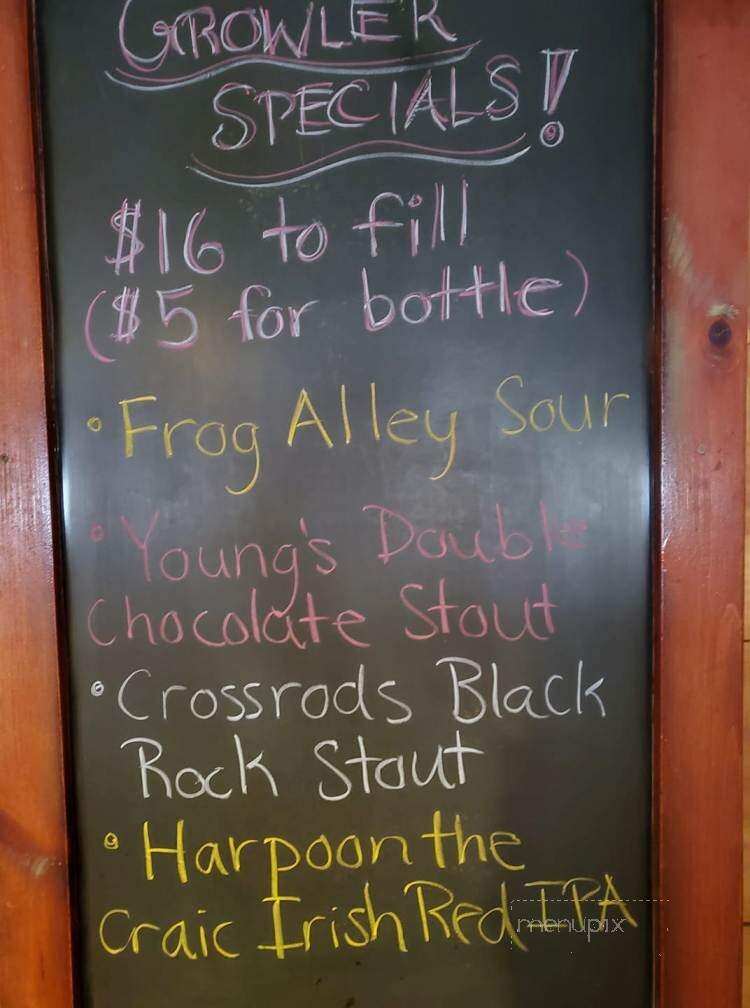 GROWLER
SPECIALS!
$16 to fill
($5 for bottle)
• Frog Alley Sour
• Young's Double
Chocolate Stout
• Crossrods Black
Rock Stout
• Harpoon the
Craic Irish Red IPA
menupix